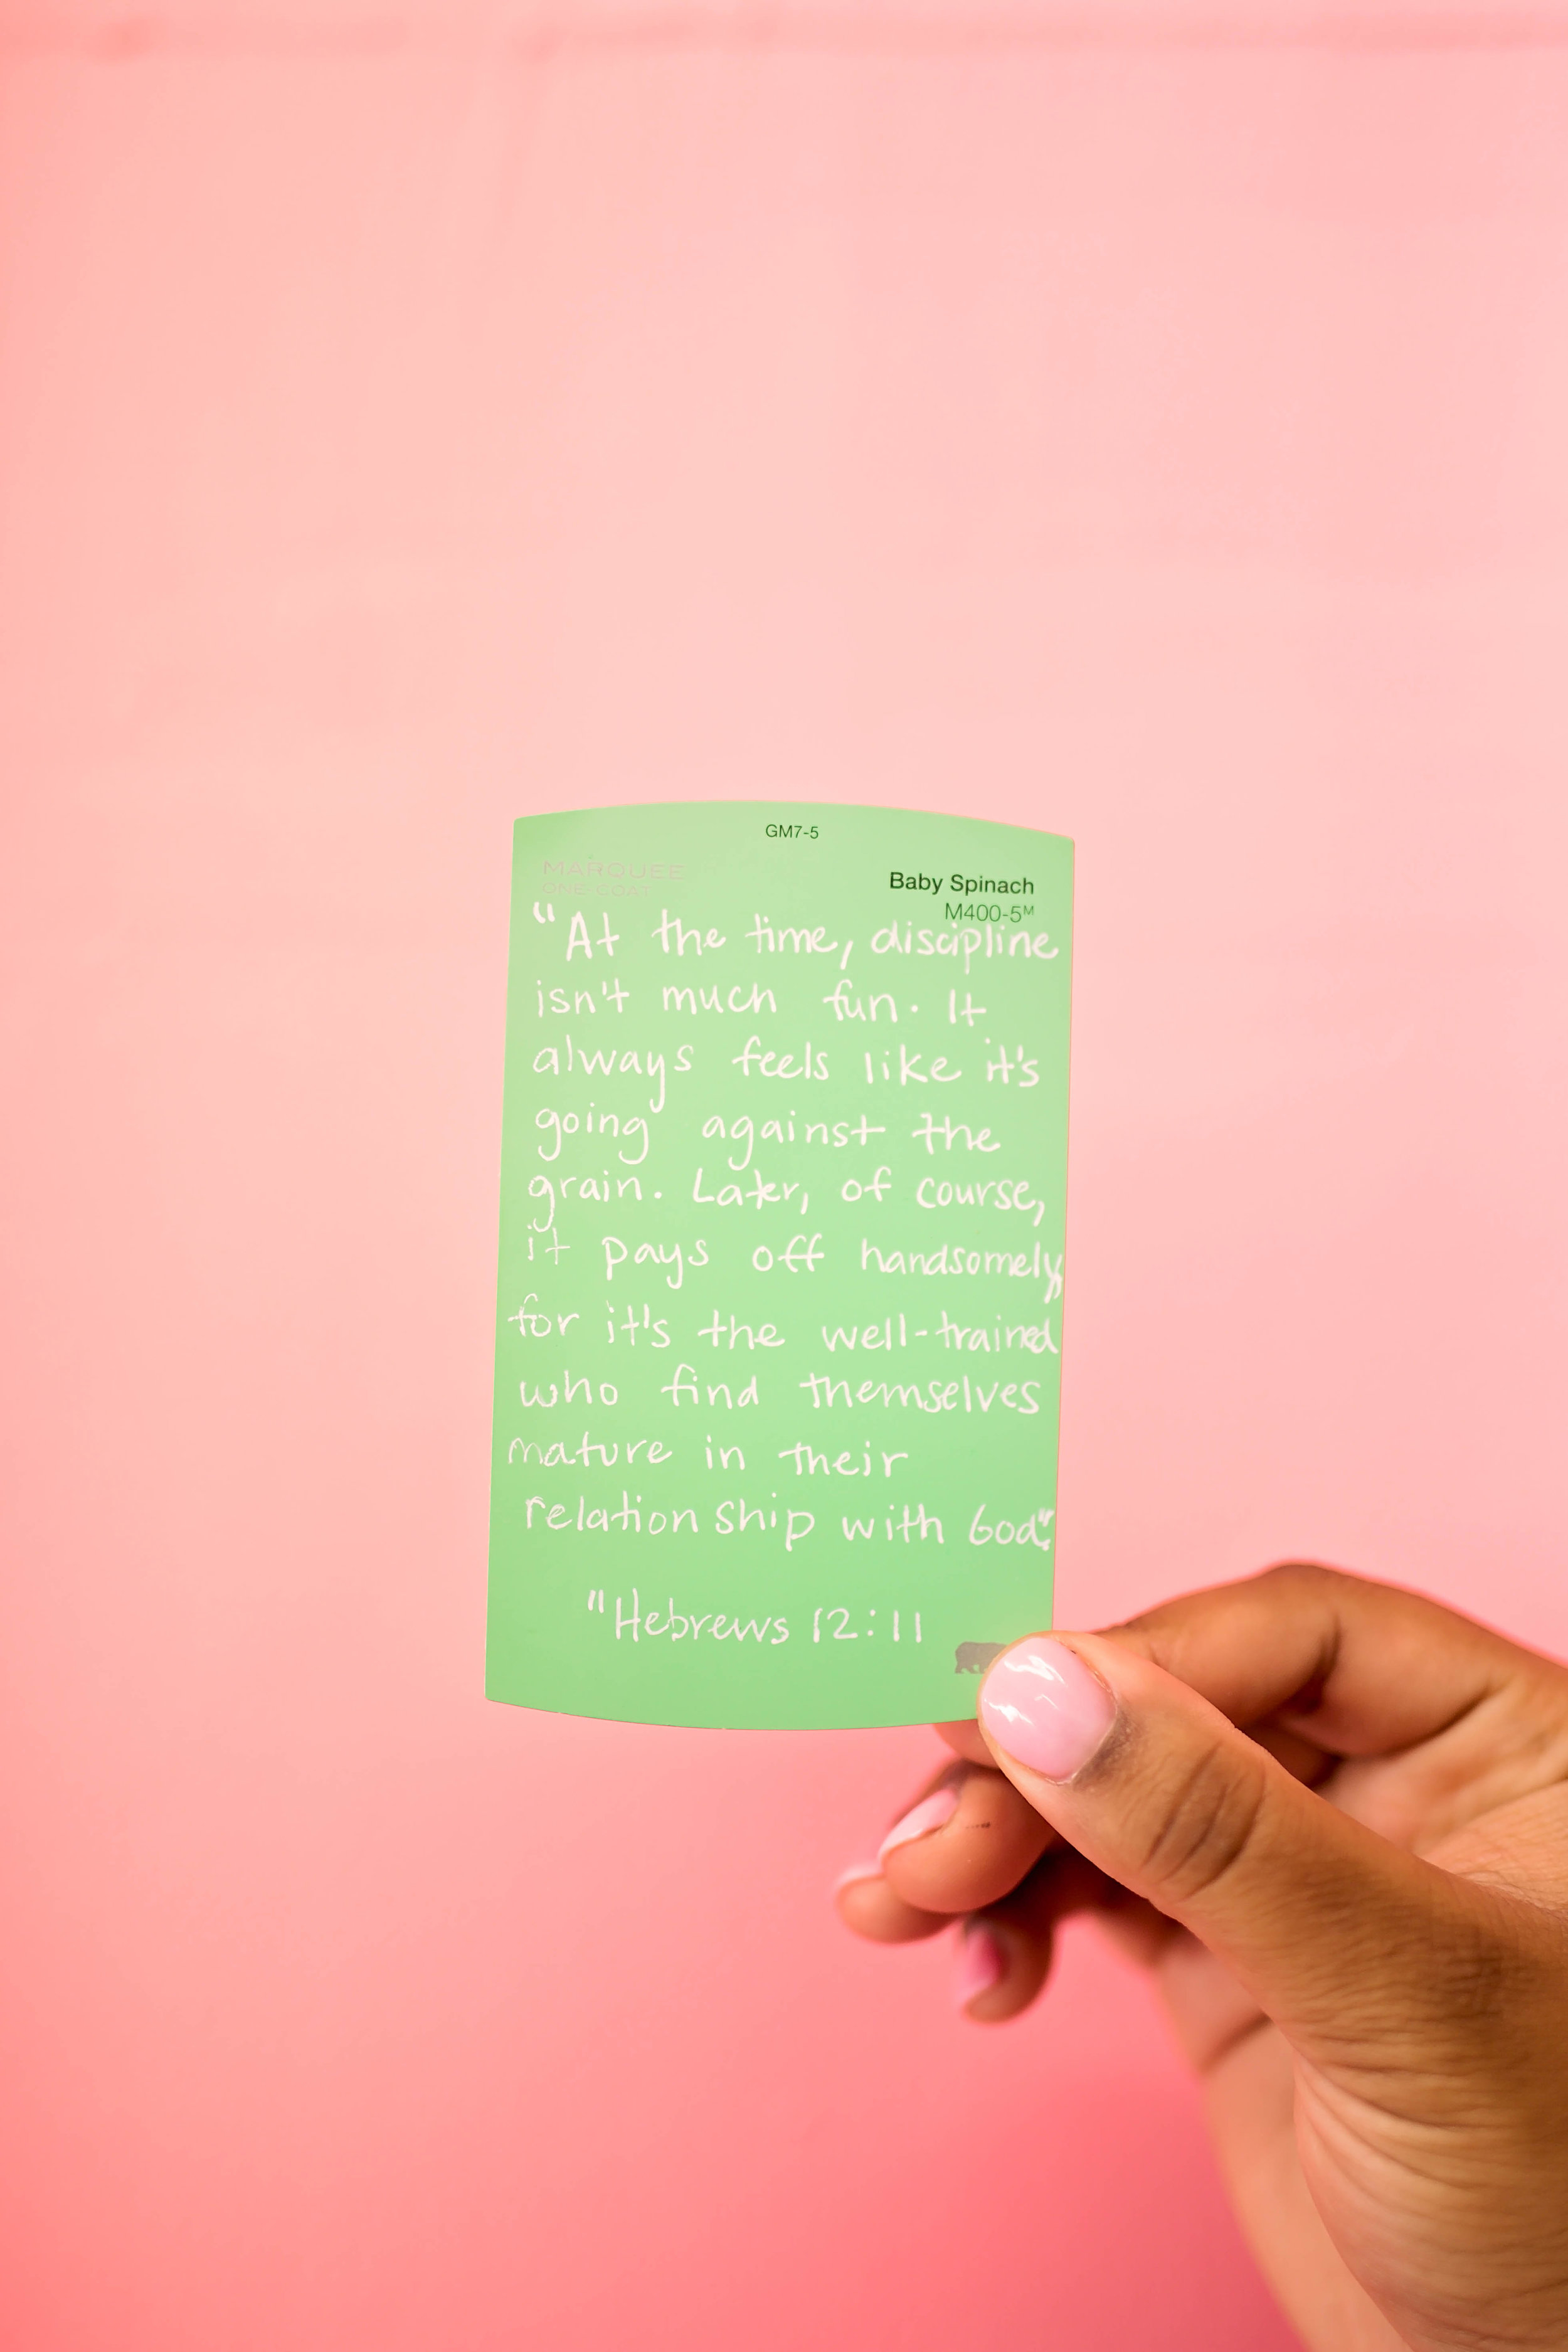 GM7-5
MARQUEE
ONE-COAT
Baby Spinach
M400-5ᴹ
"At the time, discipline
isn't much fun. It
always feels like it's
going against the
grain. Later, of course,
it pays off handsomely,
for it's the well-trained
who find themselves
mature in their
relationship with God".
"Hebrews 12:11